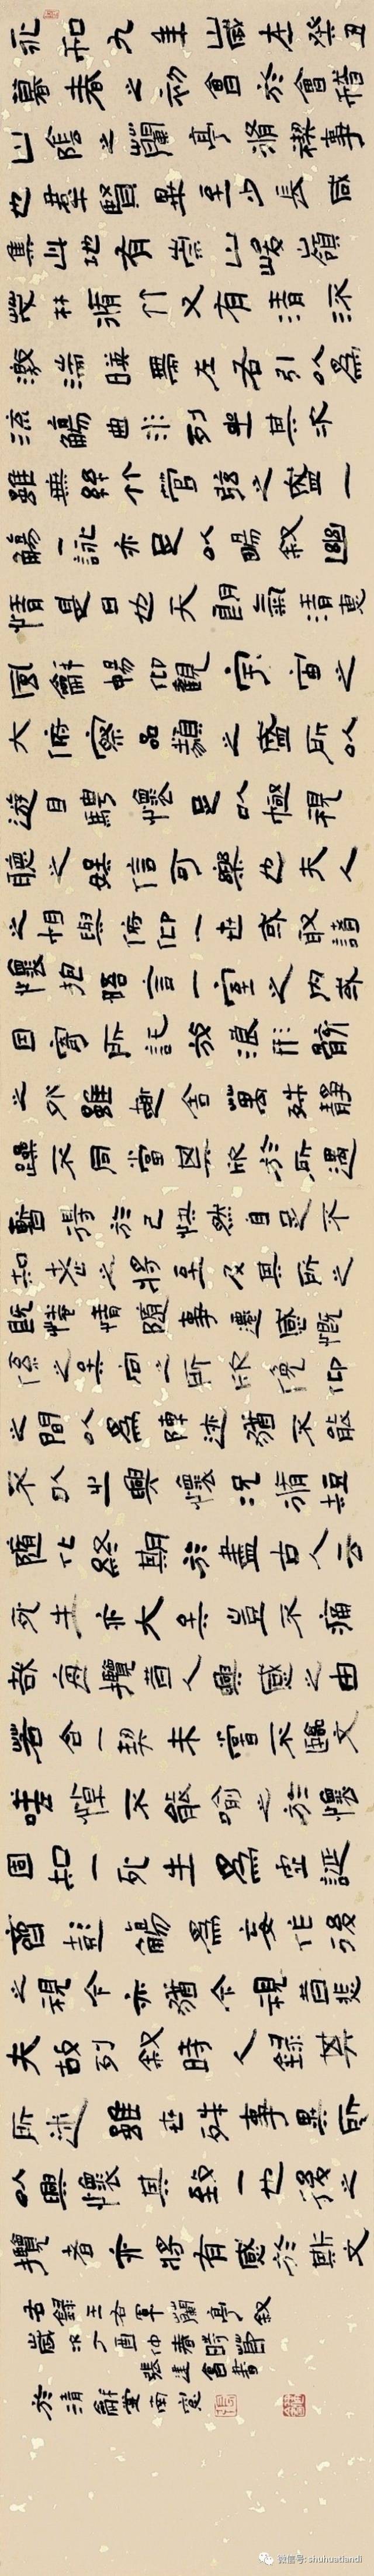 永和九年歲在癸丑
暮春之初會於會稽
山陰之蘭亭脩禊事
也羣賢畢至少長咸
集此地有崇山峻嶺
茂林脩竹又有清流
激湍暎帶左右引以為
流觴曲水列坐其次
雖無絲竹管弦之盛一
觴一詠亦足以暢叙幽
情是日也天朗氣清惠
風龢暢仰觀宇宙之
大俯察品類之盛所以
遊目騁懷足以極視
聽之娛信可樂也夫人
之相與俯仰一世或取諸
懷抱晤言一室之内或
因寄所託放浪形骸
之外雖趣舍萬殊靜
躁不同當其欣於所遇
暫得於己快然自足不
知老之將至及其所之
既惓情隨事遷感慨
係之矣向之所欣俛仰
之間以為陳迹猶不能
不以之興懷況脩短
隨化終期於盡古人云
死生亦大矣豈不痛
哉每攬昔人興感之由
若合一契未嘗不臨文
嗟悼不能喻之於懷
固知一死生為虛誕
齊彭殤為妄作後
之視今亦猶今視昔悲
夫故列叙時人錄其
所述雖世殊事異所
以興懷其致一也後之
攬者亦將有感於斯文
右錄王右軍蘭亭叙
歲次丁酉仲春時節
張進會書
於清龢堂南窗
微信号: shuhuatiandi